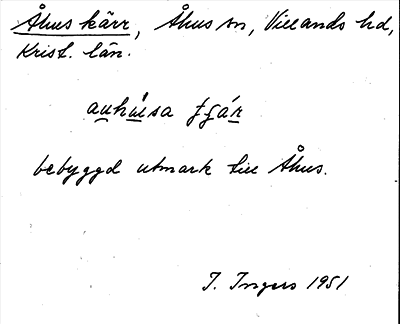 Åhus kärr, Åhus sn, Villands hd,
Krist. län.
bebyggd utmark till Åhus.
I. Ingers 1951